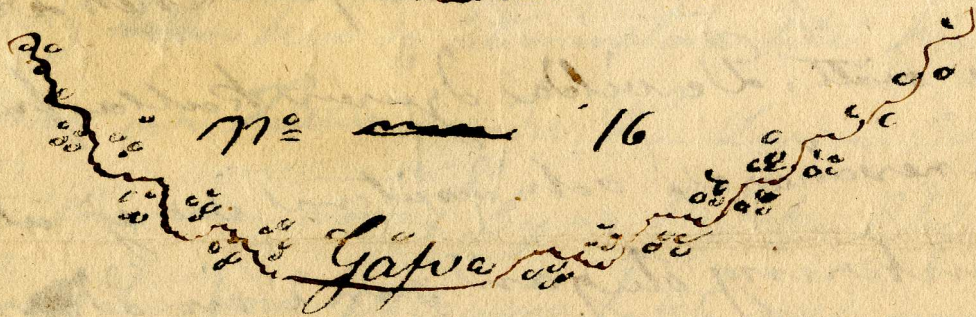 No 16
Gåfva